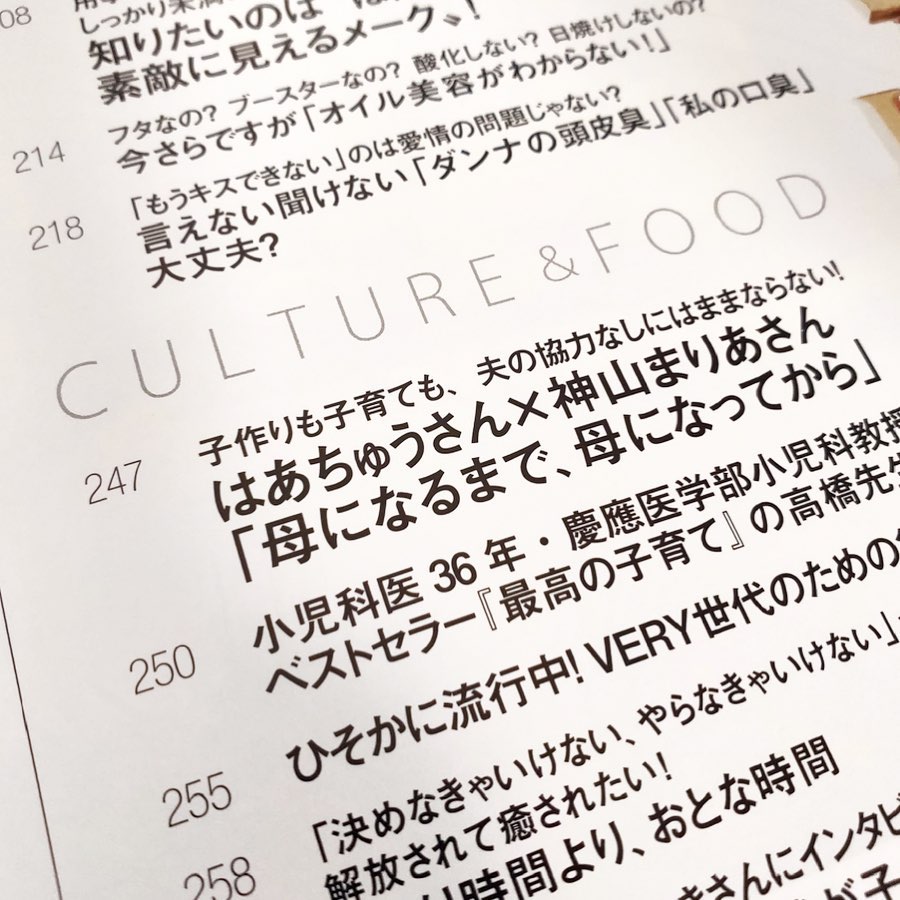 08
しっかり
知りたいのは
素敵に見えるメーク〟!
フタなの? ブースターなの? 酸化しない? 日焼けしないの?
214 今さらですが「オイル美容がわからない!」
「もうキスできない」のは愛情の問題じゃない?
218 言えない聞けない「ダンナの頭皮臭」「私の口臭」
大丈夫?
CULTURE & FOOD
子作りも子育ても、夫の協力なしにはままならない!
247 はあちゅうさん×神山まりあさん
「母になるまで、母になってから」
小児科医36年・慶應医学部小児科教授
250 ベストセラー『最高の子育て』の高橋先生
ひそかに流行中! VERY世代のための
255
「決めなきゃいけない、やらなきゃいけない」
258 解放されて癒されたい!
時間より、おとな時間
さんにインタビ
が子